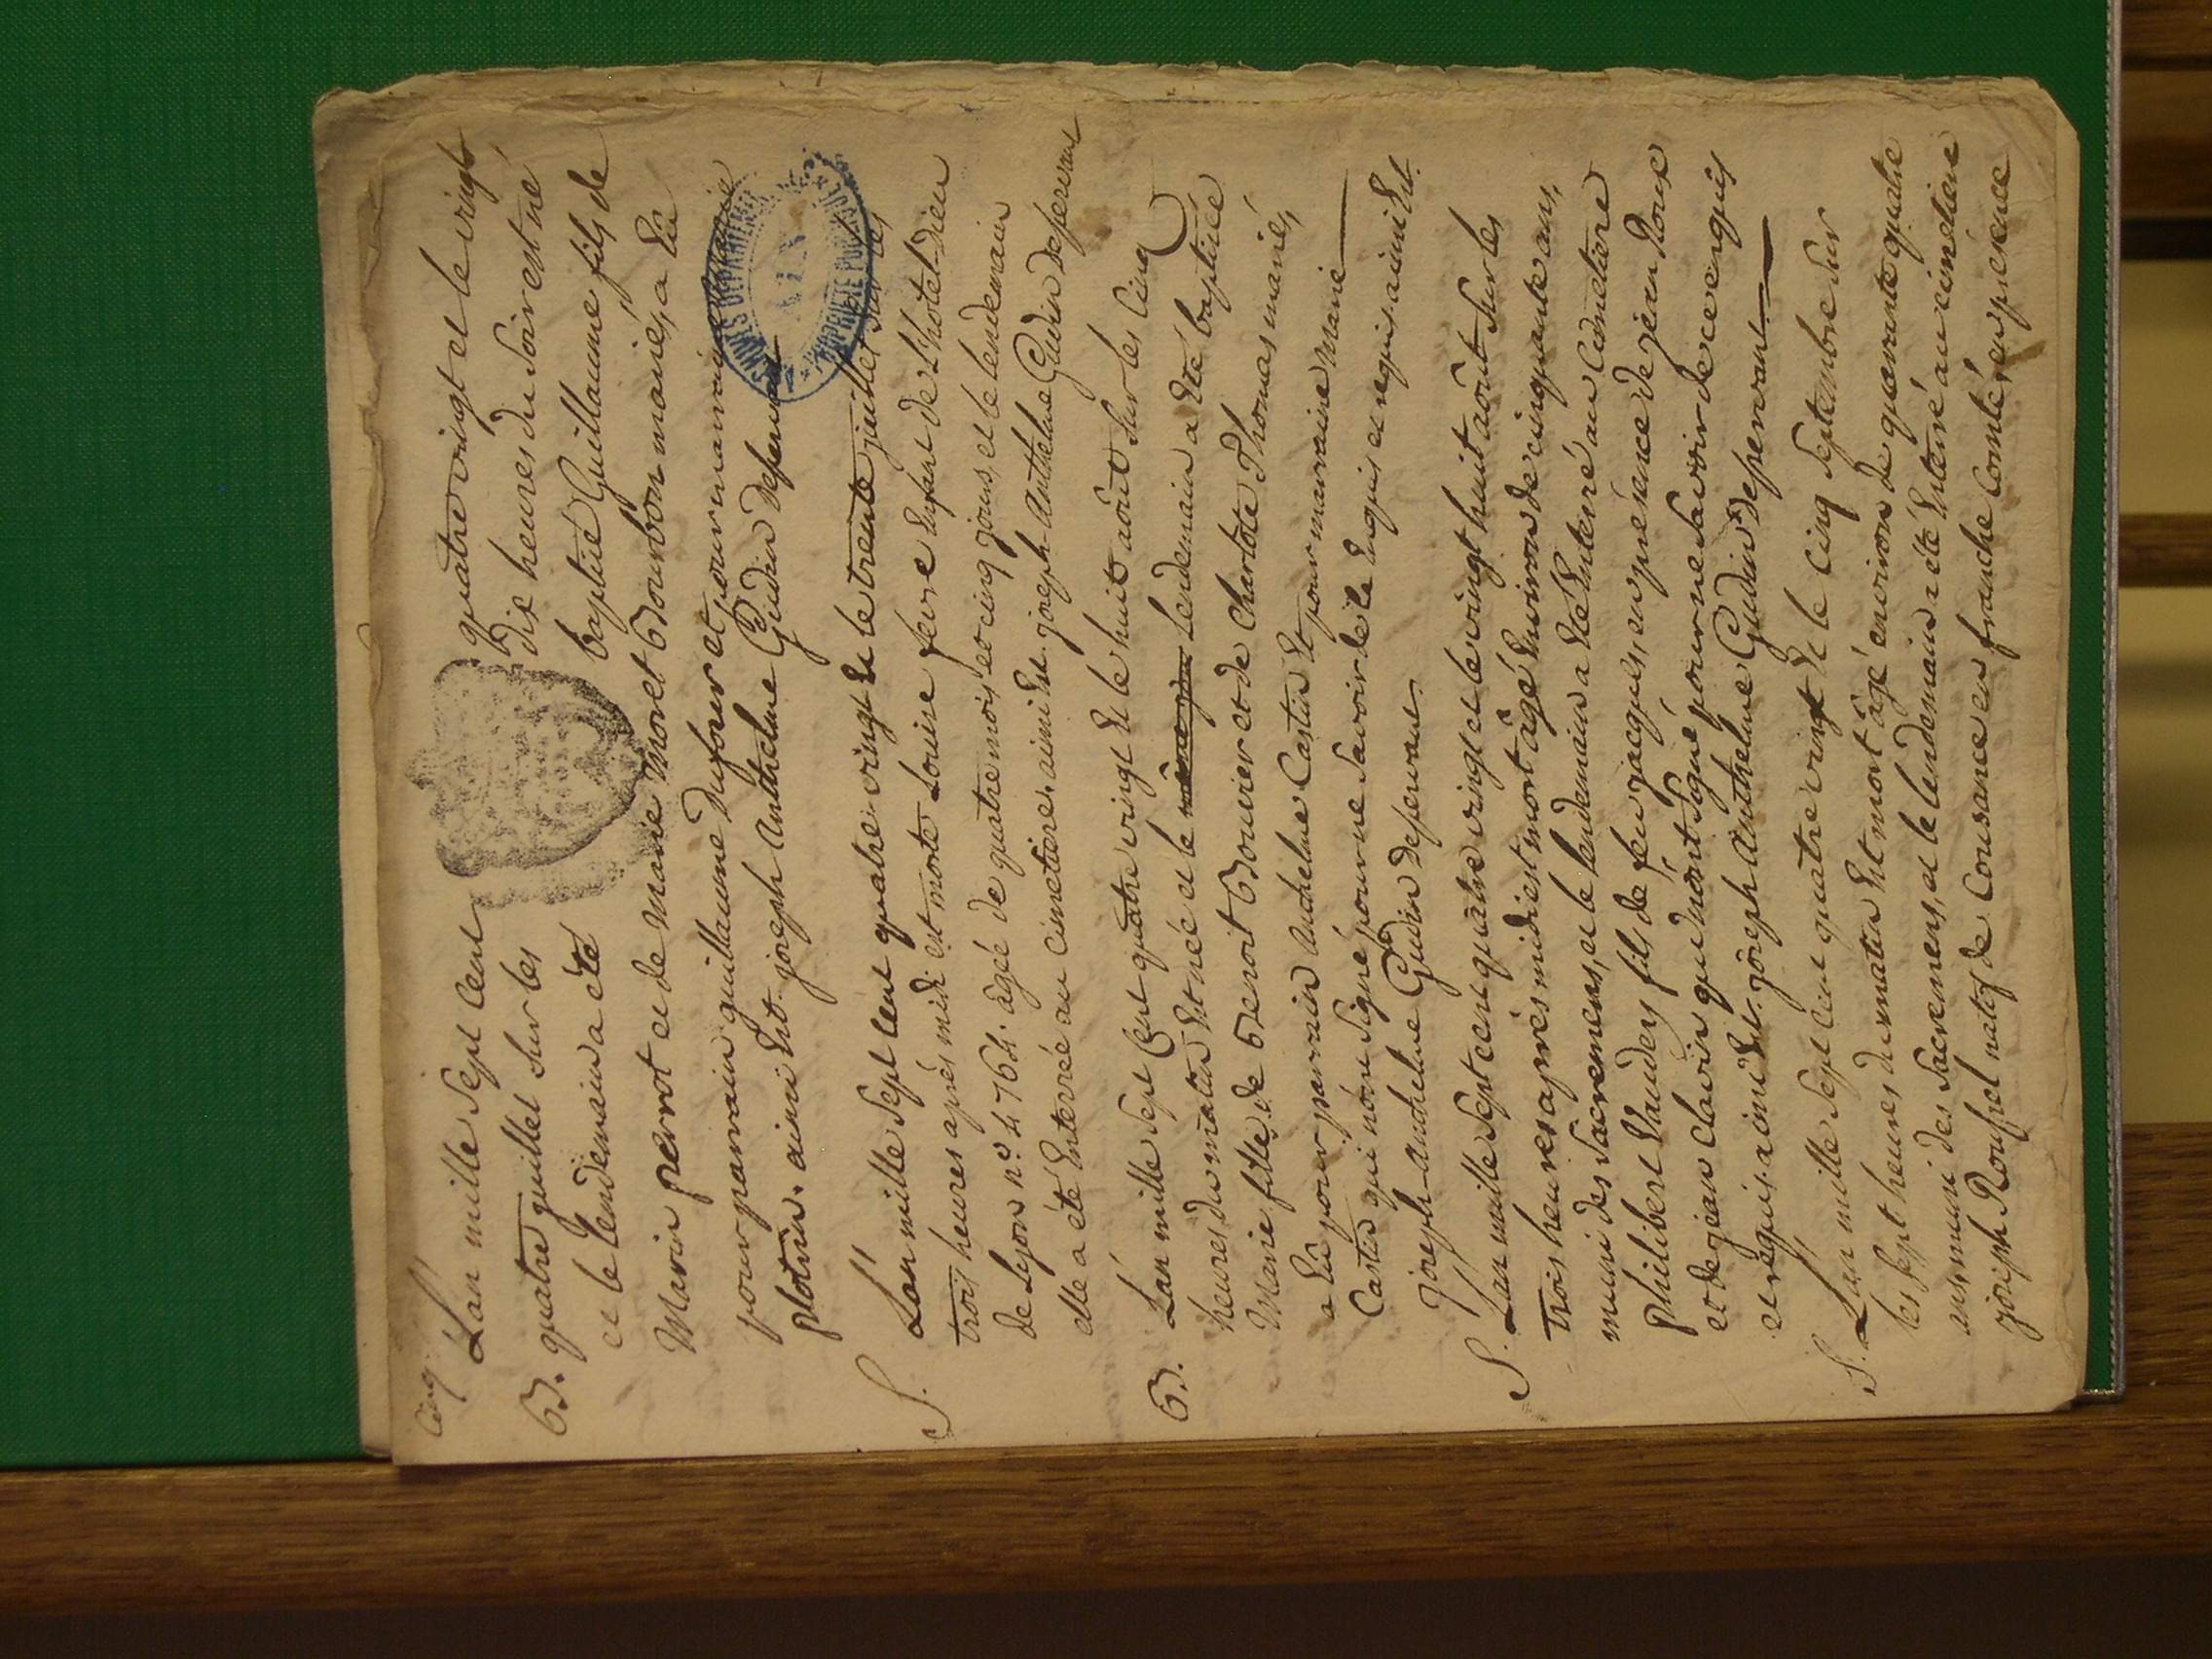 cinq
L'an mille Sept Cent quatre vingt et le vingt
B. quatre juillet Sur les Dix heures du Soir est né
et le Lendemain a été baptisé Guillaume fils de
Marin perrot et de Marie Moret Bourbon mariés, a Eû
pour parrain guillaume Dufour et pour marraine
plotin. ainsi Est. joseph Anthelme Gudin desservant
S. L'an mille Sept Cent quatre vingt Et le trente juillet Sur les
trois heures après midi est morte Louise feuve Enfant de L'hotel-Dieu
de Lyon n.o agée de quatre mois et cinq jours, et le lendemain
elle a été Enterrée au cimetiere. ainsi Est. joseph-Anthelme Gudin desservant
B. L'an mille Sept Cent quatre vingt Et le huit août Sur les Cinq
heures du matin Est née et le même jour Lendemain a Eté baptisée
Marie fille de Benoit Bouvier et de Charlote Thomas mariés,
a Eû pour parrain Anthelme Castin Et pour marraine Marie
Castin qui n'ont Signé pour ne Savoir de ce Enquis et requis ainsi Est.
joseph-Anthelme Gudin desservant.
S. L'an mille Sept cent quatre vingt et le vingt huit août Sur les
trois heures après midi est mort âgé Environ de cinquante ans,
muni des Sacremens, et le lendemain a Eté Enterré au Cimetiere
philibert Vaudey fils de feu jacques, en présence de jean Roux
et de jean Clavin qui n'ont Signé pour ne Savoir de ce enquis
et requis ainsi Est. joseph Anthelme Gudin desservant
S. L'an mille Sept Cent quatre vingt Et le Cinq Septembre Sur
les Sept heures du matin Est mort âgé environ de quarante quatre
ans, muni des Sacremens, et le lendemain a été Enterré au cimetiere
joseph Roussel natif de Cousance en franche Comté, en présence
ARCHIVES DÉPARTEMENTALES
AIN
PROPRIÉTÉ PUBLIQUE